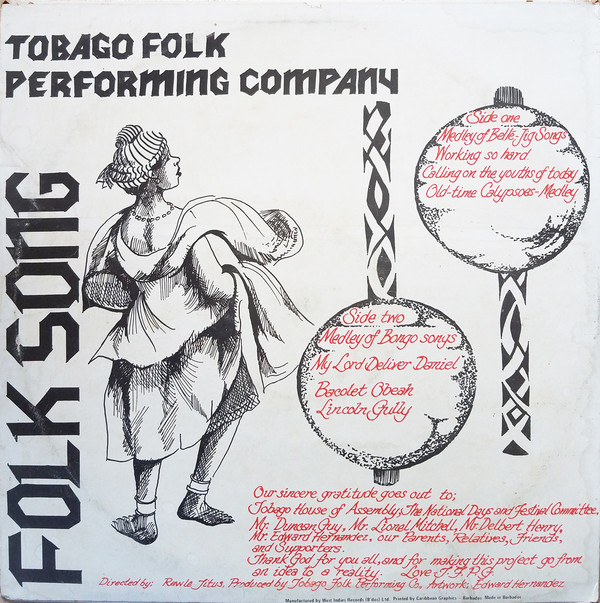 TOBAGO FOLK
PERFORMING COMPANY
FOLK SONG
Side one
Medley of Belle-Jig Songs
Working so hard
Calling on the youths of today
Old-time Calypsoes-Medley
Side two
Medley of Bongo songs
My Lord Deliver Daniel
Bacolet Obeah
Lincoln Gully
Our sincere gratitude goes out to;
Tobago House of Assembly, The National Days and Festival Committee,
Mr. Duncan Guy, Mr. Lionel Mitchell, Mr Delbert Henry,
Mr. Edward Hernandez, our Parents, Relatives, Friends,
and Supporters.
Thank God for you all, and for making this project go from
an idea to a reality. Love T.F.P.G.
Directed by: Rawle Titus, Produced by Tobago Folk Performing Co, Artwork: Edward Hernandez
Manufactured by West Indies Records (B'dos) Ltd. Printed by Caribbean Graphics - Barbados. Made in Barbados